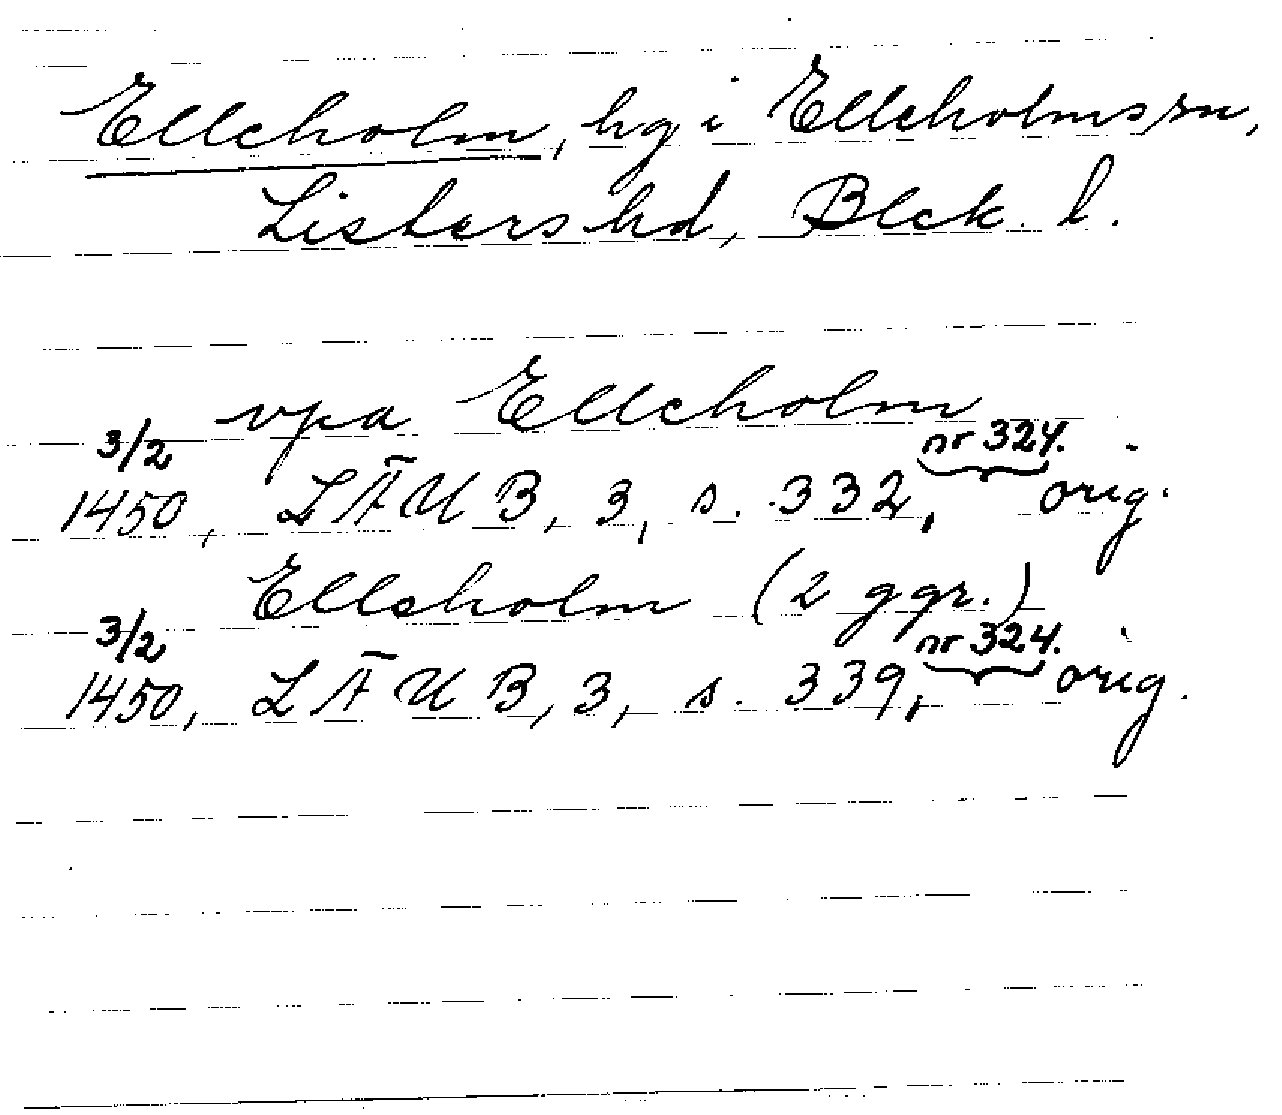 Elleholm, hg i Elleholms sn,
Listers hd, Blek. l.
vpa Elleholm
3/2 nr 324.
1450, LÄUB, 3, s. 332, orig.
Elleholm (2 ggr.)
3/2 nr 324.
1450, LÄUB, 3, s. 339, orig.